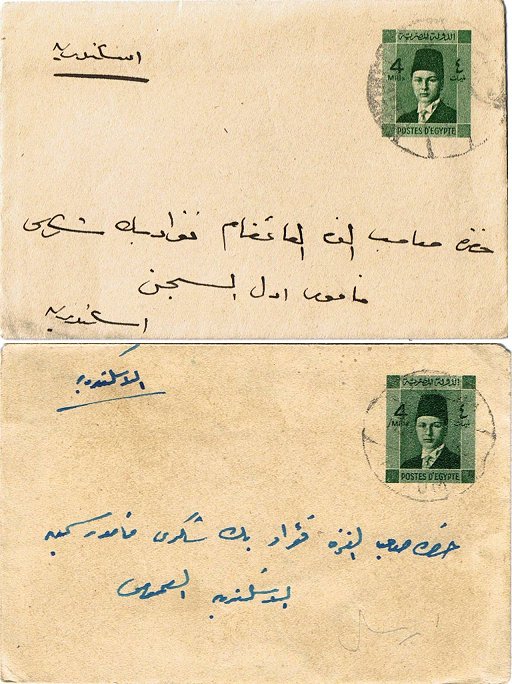 اسكندرية
الدولة المصرية
4 ٤
Mills مليمات
POSTES D'EGYPTE
حضرة صاحب العزة القائمقام فؤاد بك شكرى
مأمور اول السجن
اسكندرية
الاسكندرية
الدولة المصرية
4 ٤
Mills مليمات
POSTES D'EGYPTE
حضرة صاحب العزة فؤاد بك شكرى مأمور سجن
الاسكندرية العمومى